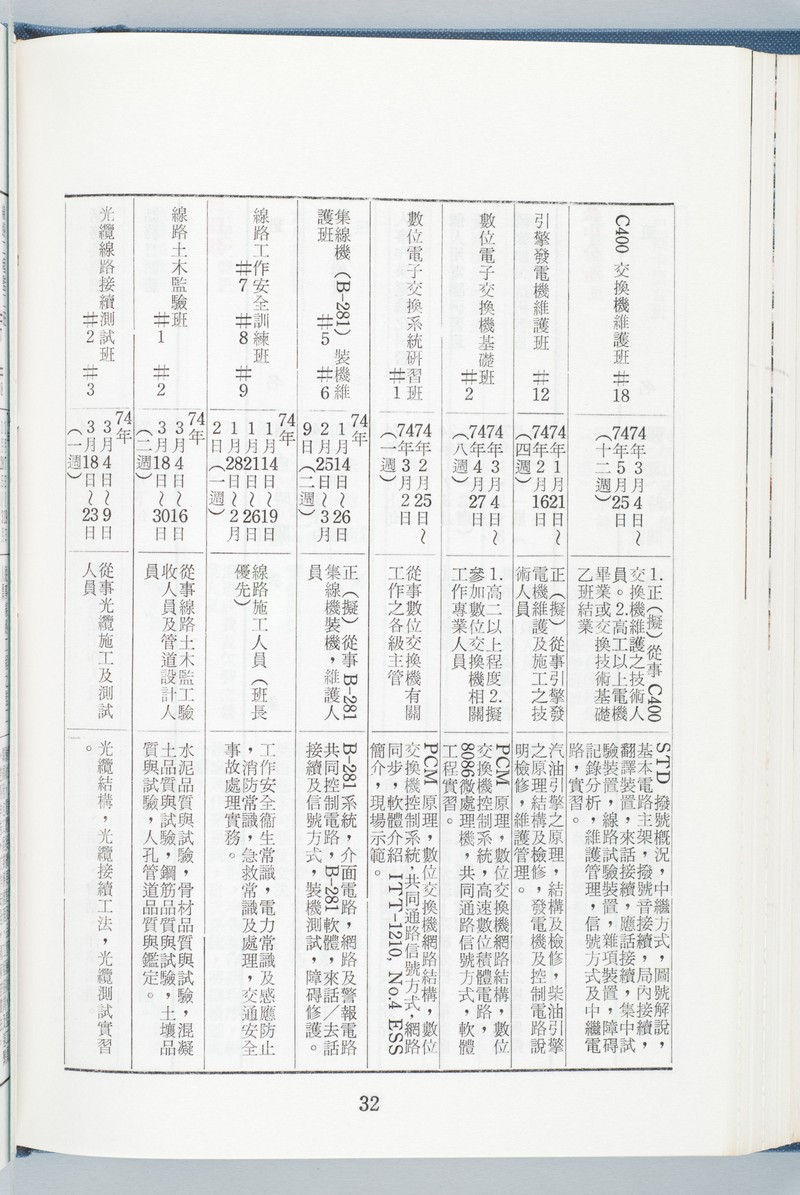 C400 交換機維護班 #18
74年3月4日~
74年5月25日
(十二週)
1.正(擬)從事C400
交換機維護之技術人
員。2.高工以上電機
畢業或交換技術基礎
乙班結業
STD 撥號概況,中繼方式,圖號解說,
基本電路主架,撥號音接續,局內接續,
翻譯裝置,來話接續,應話接續,集中試
驗裝置,線路試驗裝置,雜項裝置,障碍
記錄分析,維護管理,信號方式及中繼電
路,實習。
引擎發電機維護班 #12
74年1月21日~
74年2月16日
(四週)
正(擬)從事引擎發
電機維護及施工之技
術人員
汽油引擎之原理,結構及檢修,柴油引擎
之原理結構及檢修,發電機及控制電路說
明檢修,維護管理。
數位電子交換機基礎班
#2
74年3月4日~
74年4月27日
(八週)
1.高二以上程度2.擬
參加數位交換機相關
工作專業人員
PCM 原理,數位交換機網路結構,數位
交換機控制系統,高速數位積體電路,
8086微處理機,共同通路信號方式,軟體
工程實習。
數位電子交換系統研習班
#1
74年2月25日~
74年3月2日
(一週)
從事數位交換機有關
工作之各級主管
PCM 原理,數位交換機網路結構,數位
交換機控制系統,共同通路信號方式,網路
同步,軟體介紹 ITT-1210, No.4 ESS
簡介,現場示範。
集線機(B-281)裝機維
護班 #5 #6
74年
1月14日~26日
2月25日~3月
9日(二週)
正(擬)從事 B-281
集線機裝機,維護人
員
B-281 系統,介面電路,網路及警報電路
共同控制電路,B-281 軟體,來話/去話
接續及信號方式,裝機測試,障碍修護。
線路工作安全訓練班
#7 #8 #9
74年
1月14日~19日
1月21日~26日
1月28日~2月
2日(一週)
線路施工人員(班長
優先)
工作安全衞生常識,電力常識及感應防止
,消防常識,急救常識及處理,交通安全
事故處理實務。
線路土木監驗班
#1 #2
74年
3月4日~16日
3月18日~30日
(二週)
從事線路土木監工驗
收人員及管道設計人
員
水泥品質與試驗,骨材品質與試驗,混凝
土品質與試驗,鋼筋品質與試驗,土壤品
質與試驗,人孔管道品質與鑑定。
光纜線路接續測試班
#2 #3
74年
3月4日~9日
3月18日~23日
(一週)
從事光纜施工及測試
人員
光纜結構,光纜接續工法,光纜測試實習
。
32